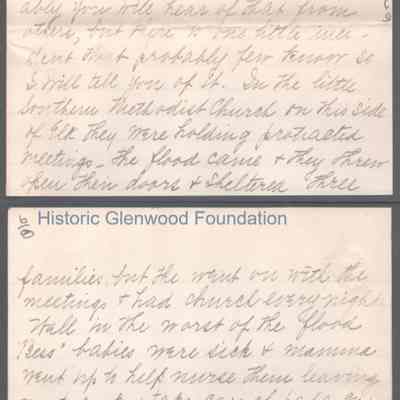 ably you will hear of that from
others, but there is one little inci-
dent that probably few know so
I will tell you of it. In the little
Southern Methodist Church on this side
of Elk they were holding protracted
meetings - the flood came & they threw
open their doors & sheltered three
Historic Glenwood Foundation
families, but the went on with the
meetings & had church every night
in the worst of the flood
"Bess" babies were sick & mamma
went up to help nurse them leaving